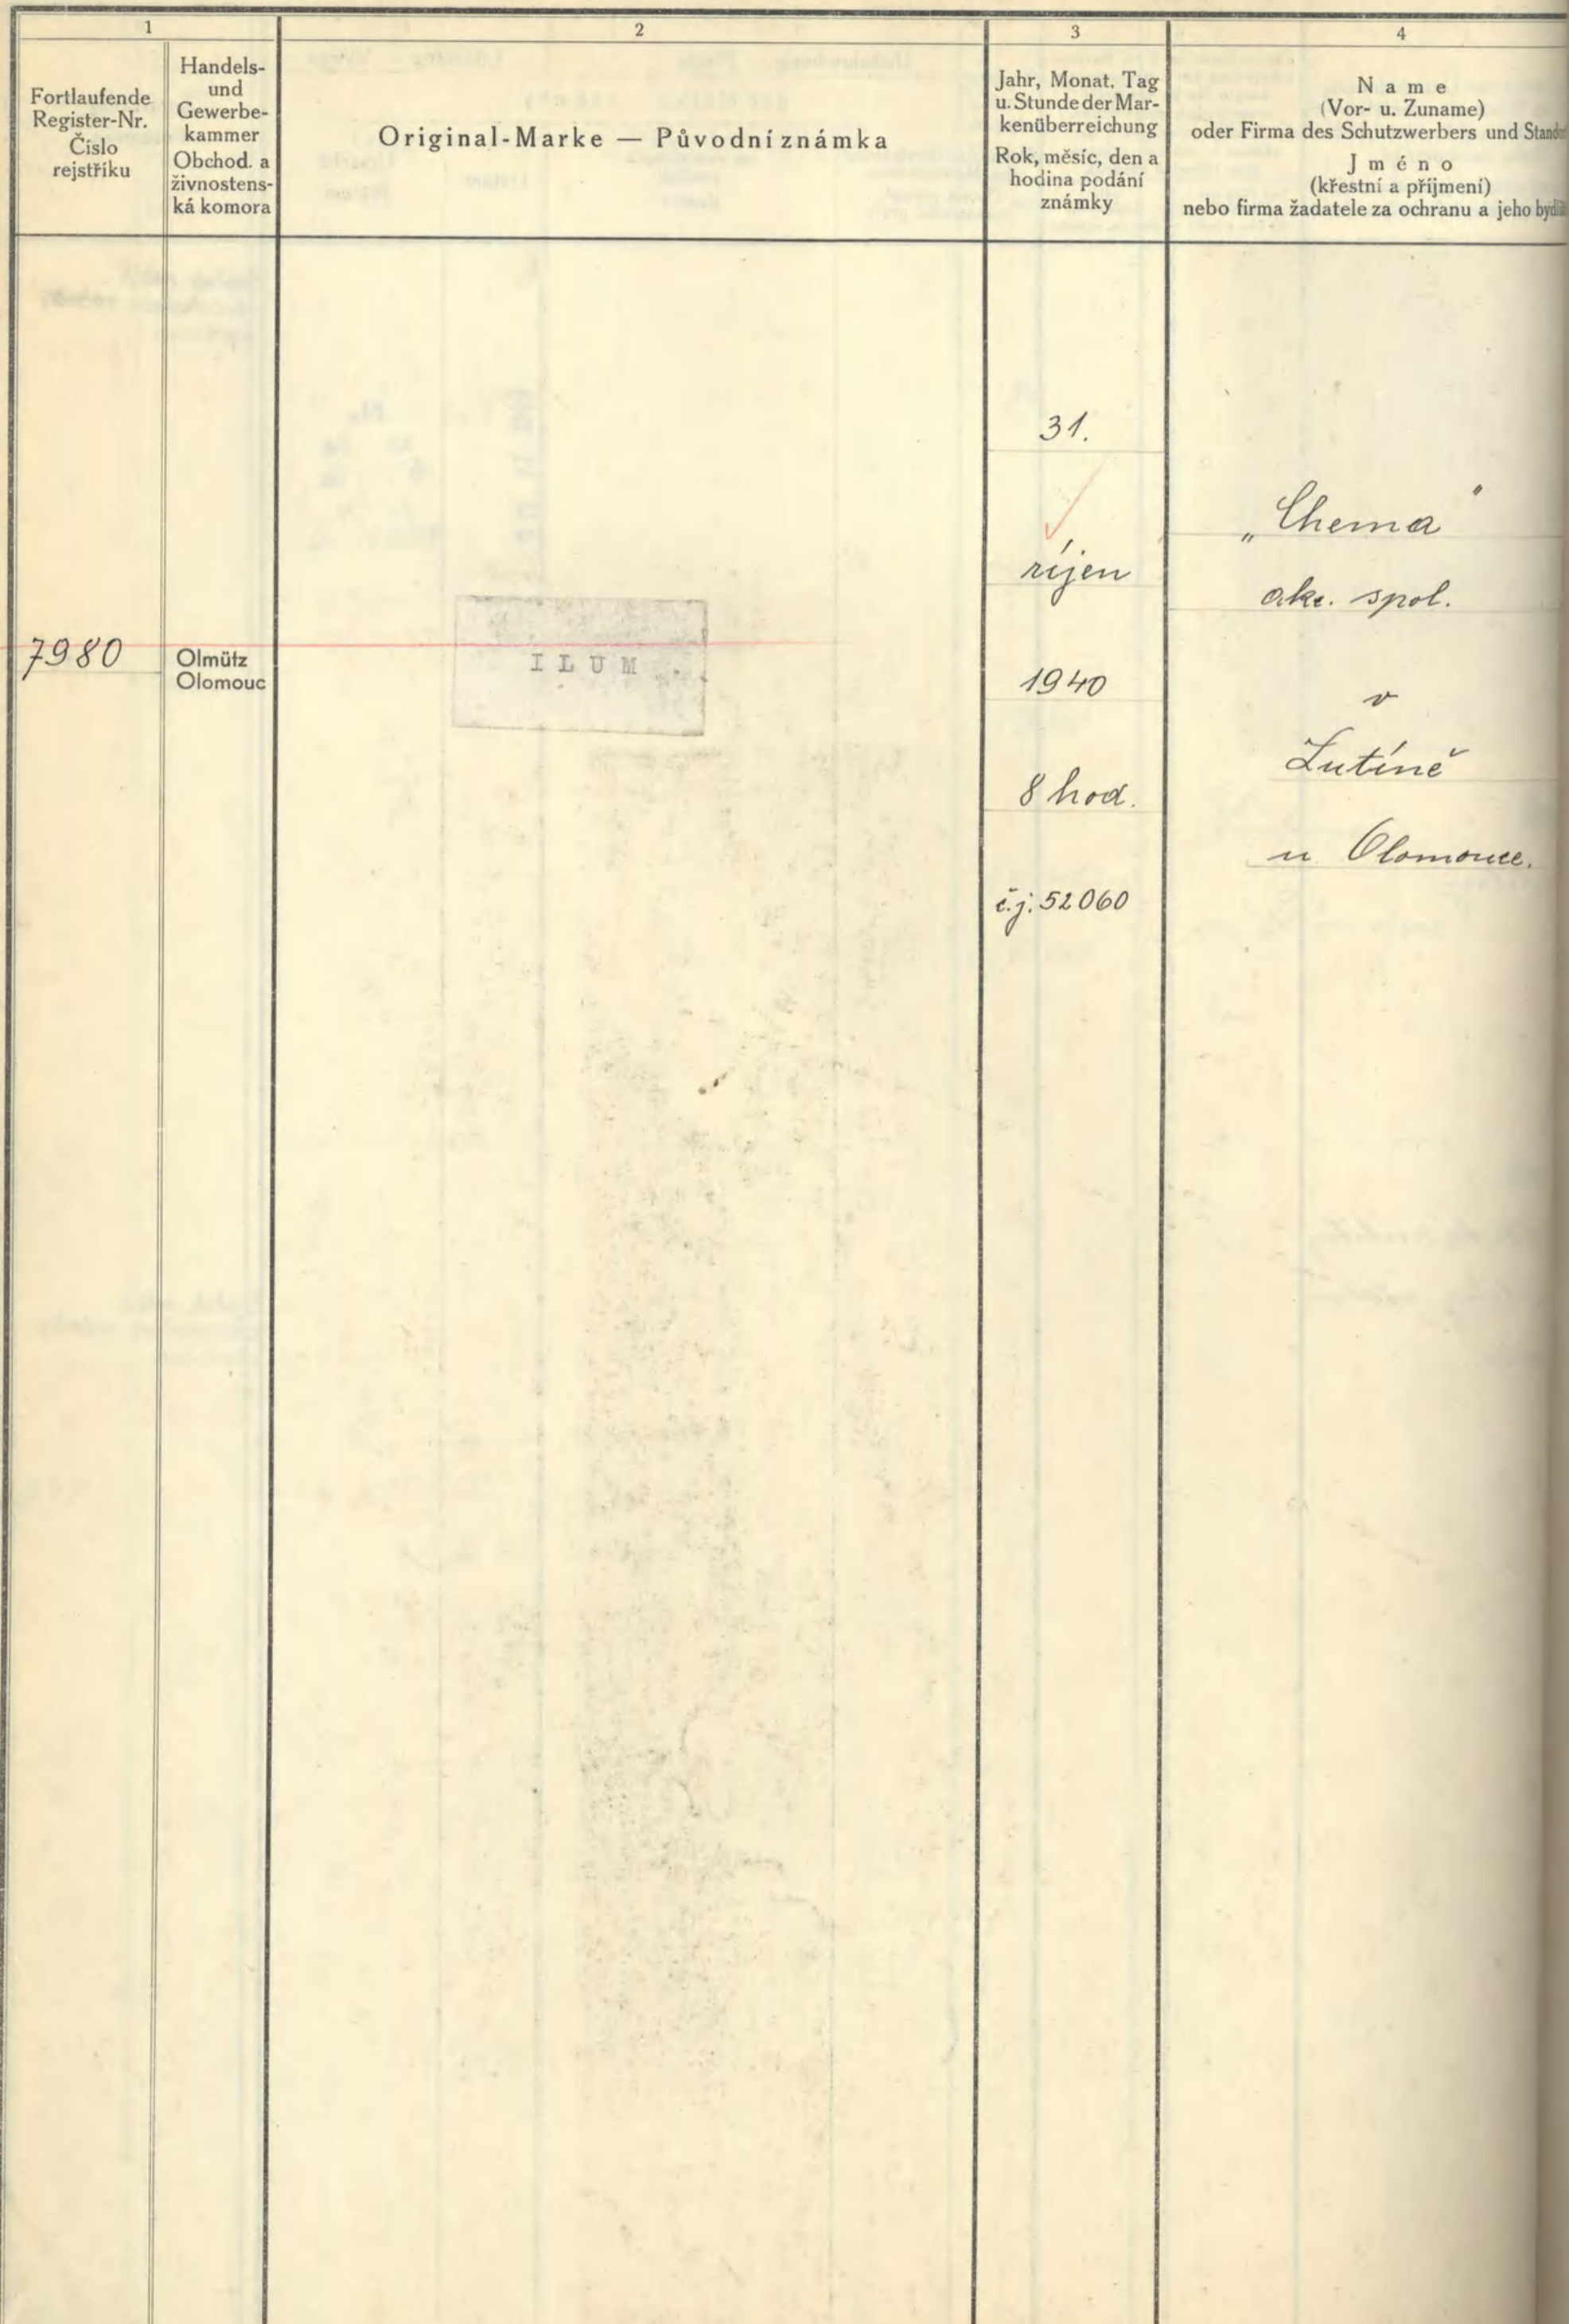 1
2
3
4
Fortlaufende
Register-Nr.
Číslo
rejstříku
Handels-
und
Gewerbe-
kammer
Obchod. a
živnostens-
ká komora
Original-Marke — Původní známka
Jahr, Monat, Tag
u. Stunde der Mar-
kenüberreichung
Rok, měsíc, den a
hodina podání
známky
Name
(Vor- u. Zuname)
oder Firma des Schutzwerbers und
Jméno
(křestní a příjmení)
nebo firma žadatele za ochranu a jeho
7980
Olmütz
Olomouc
ILUM
31.
říjen
1940
8 hod.
č.j. 52060
„Chema"
akc. spol.
v
Lutíně
u Olomouce.